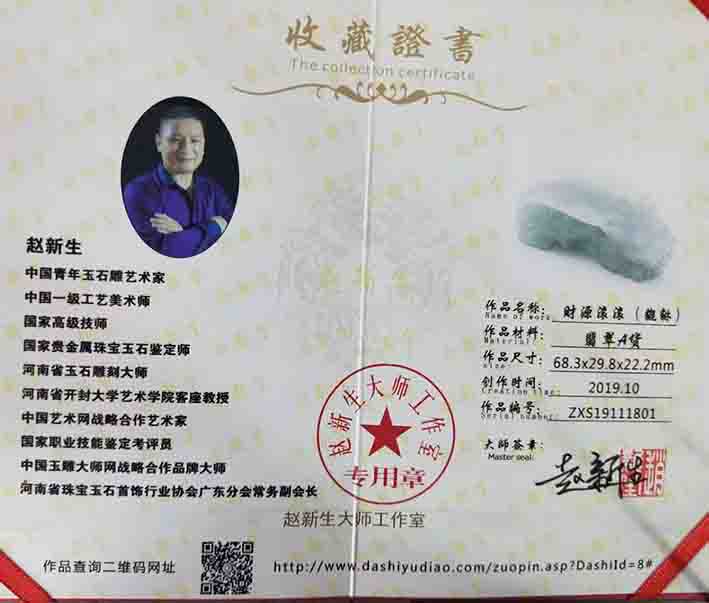 收藏證書
The collection certificate
赵新生
中国青年玉石雕艺术家
中国一级工艺美术师
国家高级技师
国家贵金属珠宝玉石鉴定师
河南省玉石雕刻大师
河南省开封大学艺术学院客座教授
中国艺术网战略合作艺术家
国家职业技能鉴定考评员
中国玉雕大师网战略合作品牌大师
河南省珠宝玉石首饰行业协会广东分会常务副会长
作品名称: 财源滚滚（貔貅）
Name of work:
作品材料: 翡翠A货
Material:
作品尺寸: 68.3x29.8x22.2mm
size:
创作时间: 2019.10
Creation time:
作品编号: ZXS19111801
Serial number:
大师签章:
Master seal:
赵新生
赵新生大师工作室
专用章
赵新生大师工作室
作品查询二维码网址
http://www.dashiyudiao.com/zuopin.asp?DashiId=8#